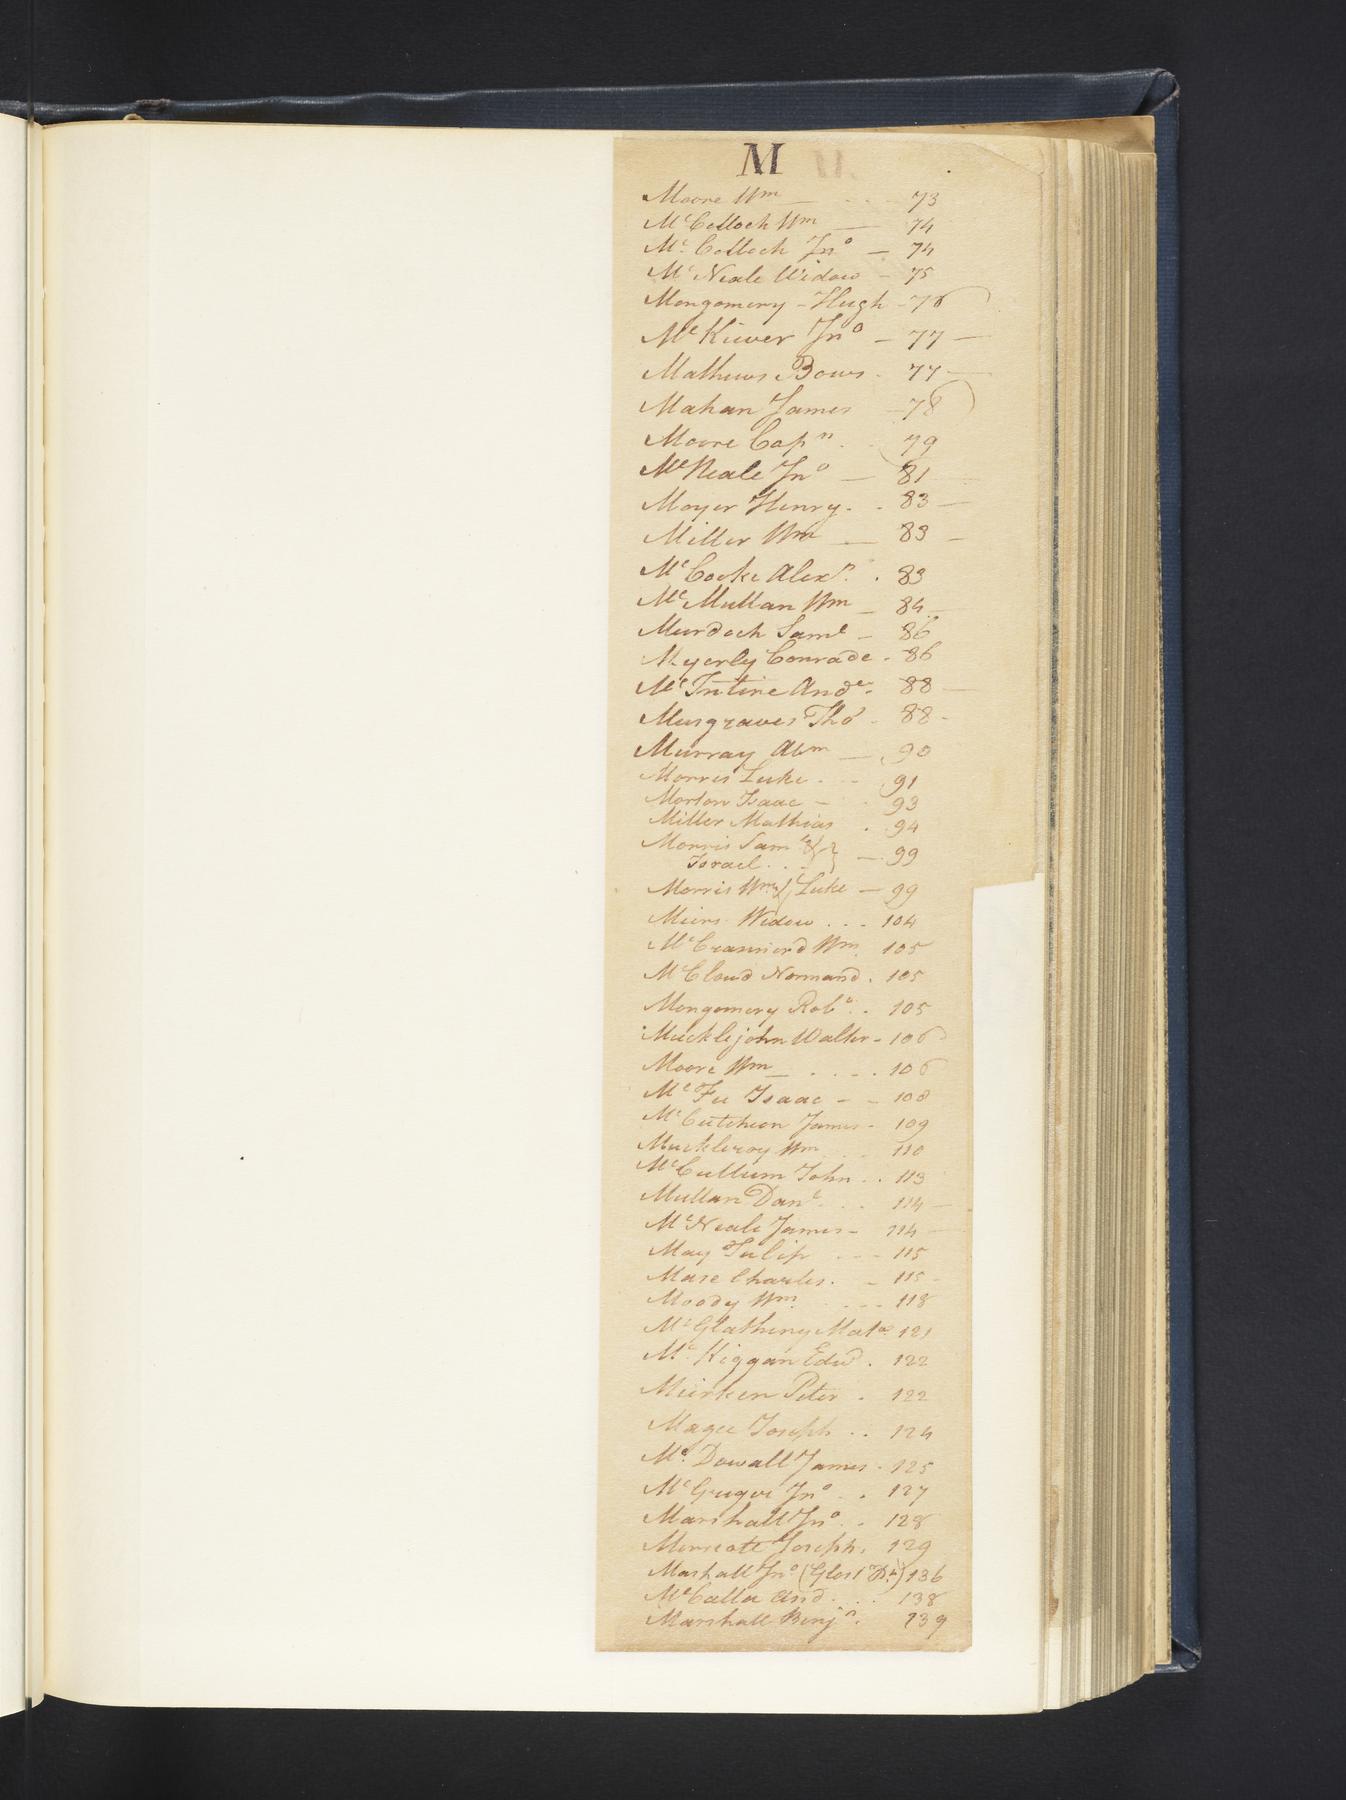 M
Moore Wm - - - 73
McColloch Wm — 74
Mc Colloch Jno — 74
Mc Neale Widow - 75
Mongomery - Hugh - 76
McKiver Jno — 77 —
Mathews Bows - 77 —
Mahan James - 78
Moore Capn . 79
McNeale Jno — 81
Moyer Henry . . 83 —
Miller Wm — 83 -
McCocke Alexr . . 83
McMullan Wm — 84 -
Murdoch Saml — 86
Myerly Conrade . 86
McIntire Andw . 88 —
Musgraves Tho . 88 -
Murray Abm — 90
Morris Luke . - - 91
Morton Isaac - . 93
Miller Mathias . 94
Morris Saml & }
Israel . . } — 99
Morris Wm & Luke — 99
Miers Widow . . . 104
Mc Wm 105
McCloud Normand . 105
Mongomery Robt . . 105
Mucklejohn Walter - 106
Moore Wm — . . . . 106
McFee Isaac - - 108
McCutcheon James - 109
Muckleroy Wm . . . 110
McCullum John . . 113
Mullan Danl . . . 114 —
McNeale James - 114 —
May Tulip - - - 115
Mase Charles . - 115 -
Moody Wm . - - - 118
McGlathery Mat 121
Mc Kiggan Edwd . 122
Mierken Peter . 122
Magee Joseph . . 124
Mc Dowall James . 125
McGregor Jno . . 127
Marshall Jno . . 128
Joseph . 129
Marshall Jno 136
McCalla And . . . 138
Marshall Benjn . 139